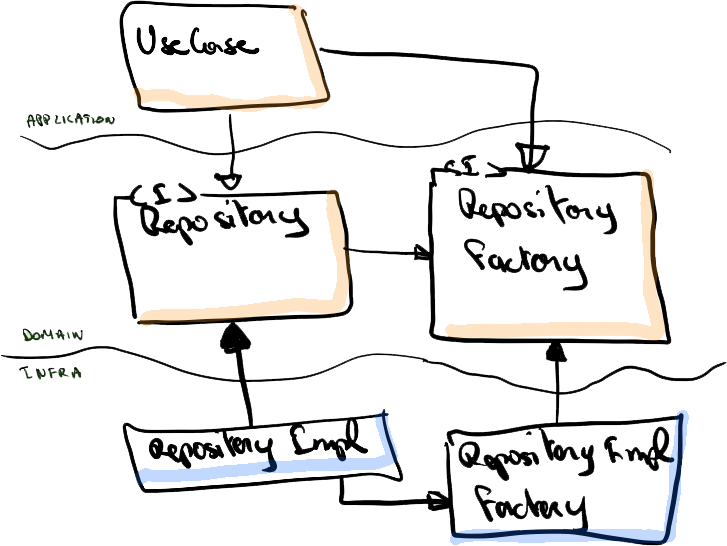 UseCase
APPLICATION
<I>
Repository
<I>
Repository
Factory
DOMAIN
INFRA
Repository Impl
Repository Impl
Factory